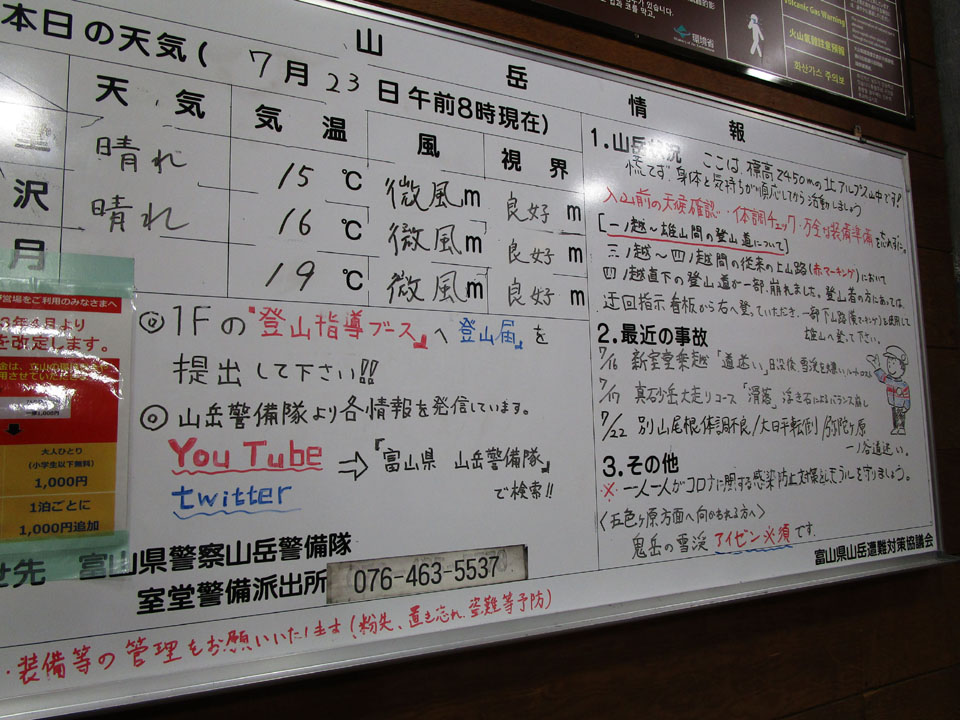 山岳情報
本日の天気(7月23日午前8時現在)
天気 気温 風 視界
晴れ 15℃ 微風m 良好m
沢 晴れ 16℃ 微風m 良好m
月 19℃ 微風m 良好m
◎1Fの"登山指導ブース"へ登山届を
提出して下さい!!
◎山岳警備隊より各情報を発信しています。
You Tube
twitter
⇨『富山県 山岳警備隊』
で検索!!
せ先 富山県警察山岳警備隊
室堂警備派出所 076-463-5537
・装備等の管理をお願いいたします(紛失、置き忘れ、盗難等予防)
営場をご利用のみなさまへ
年4月より
を改定します。
大人ひとり
(小学生以下無料)
1,000円
1泊ごとに
1,000円追加
1.山岳状況 ここは、標高2450mの北アルプス山中です!
慌てず、身体と気持ちが順応してから活動しましょう
入山前の天候確認・体調チェック・万全な装備準備を
[一ノ越〜雄山間の登山道について]
三ノ越〜四ノ越間の従来の上山路(赤マーキング)において
四ノ越直下の登山道が一部、崩れました。登山者の方にあっては、
迂回指示看板から右へ登っていただき、一部下山路(黄マーキング)を使用して
雄山へ登って下さい。
2.最近の事故
7/16 新室堂乗越「道迷い」日没後、雪渓
7/17 真砂岳大走りコース「滑落」浮き石によりバランス崩し
7/22 別山尾根体調不良/大日平転倒/弥陀ヶ原
一ノ谷道迷い。
3.その他
※一人一人がコロナに関する感染防止対策とルールを守りましょう。
〈五色ヶ原方面へ向かわれる方へ〉
鬼岳の雪渓アイゼン必須です。
富山県山岳遭難対策協議会
環境省
Volcanic Gas Warning
火山氣體注意預報
화산가스 주의보